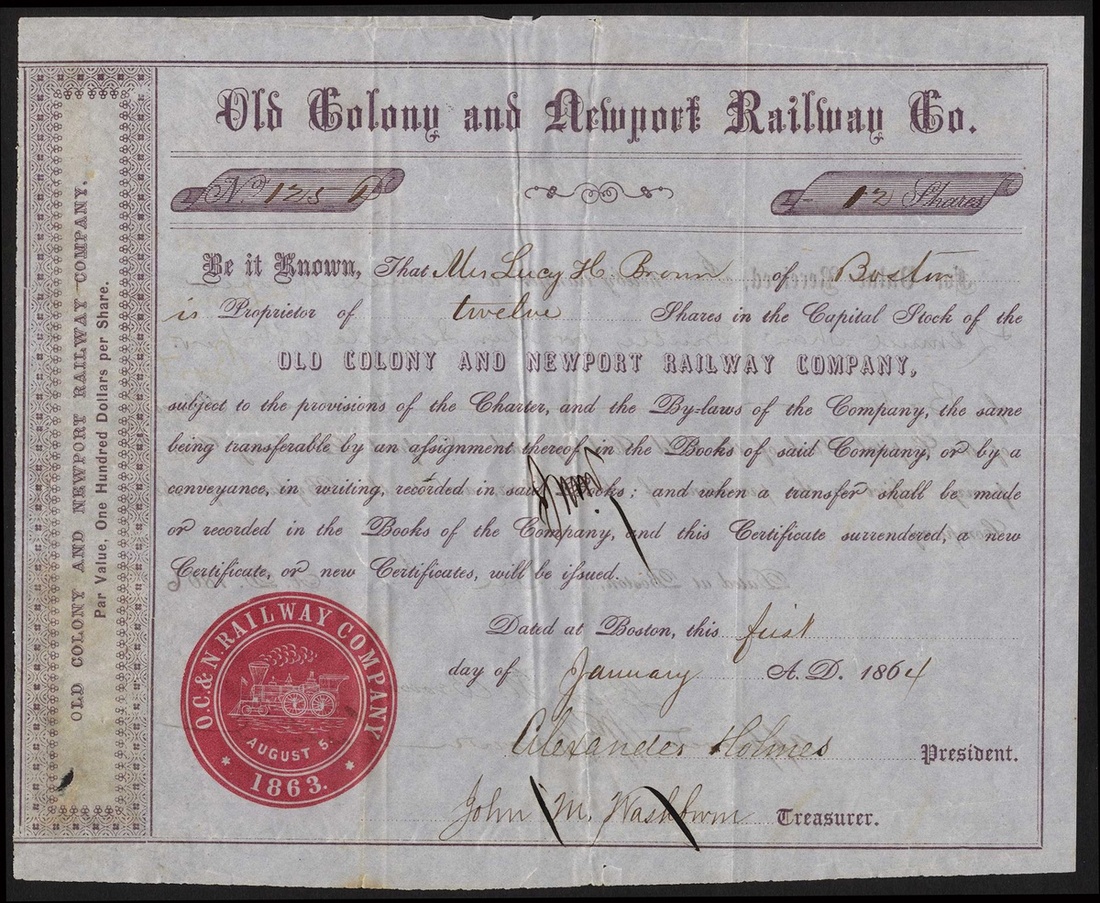 Old Colony and Newport Railway Co.
No. 125
12 Shares
Be it Known, That Mrs Lucy H. Brown of Boston
is Proprietor of twelve Shares in the Capital Stock of the
OLD COLONY AND NEWPORT RAILWAY COMPANY,
subject to the provisions of the Charter, and the By-laws of the Company, the same
being transferable by an assignment thereof in the Books of said Company, or by a
conveyance, in writing, recorded in said Books; and when a transfer shall be made
or recorded in the Books of the Company, and this Certificate surrendered, a new
Certificate, or new Certificates, will be issued.
Dated at Boston, this first
day of January A.D. 1864
Alexander Holmes President.
John M. Washburn Treasurer.
O.C.& N. RAILWAY COMPANY
AUGUST 5.
1863.
OLD COLONY AND NEWPORT RAILWAY COMPANY.
Par Value, One Hundred Dollars per Share.